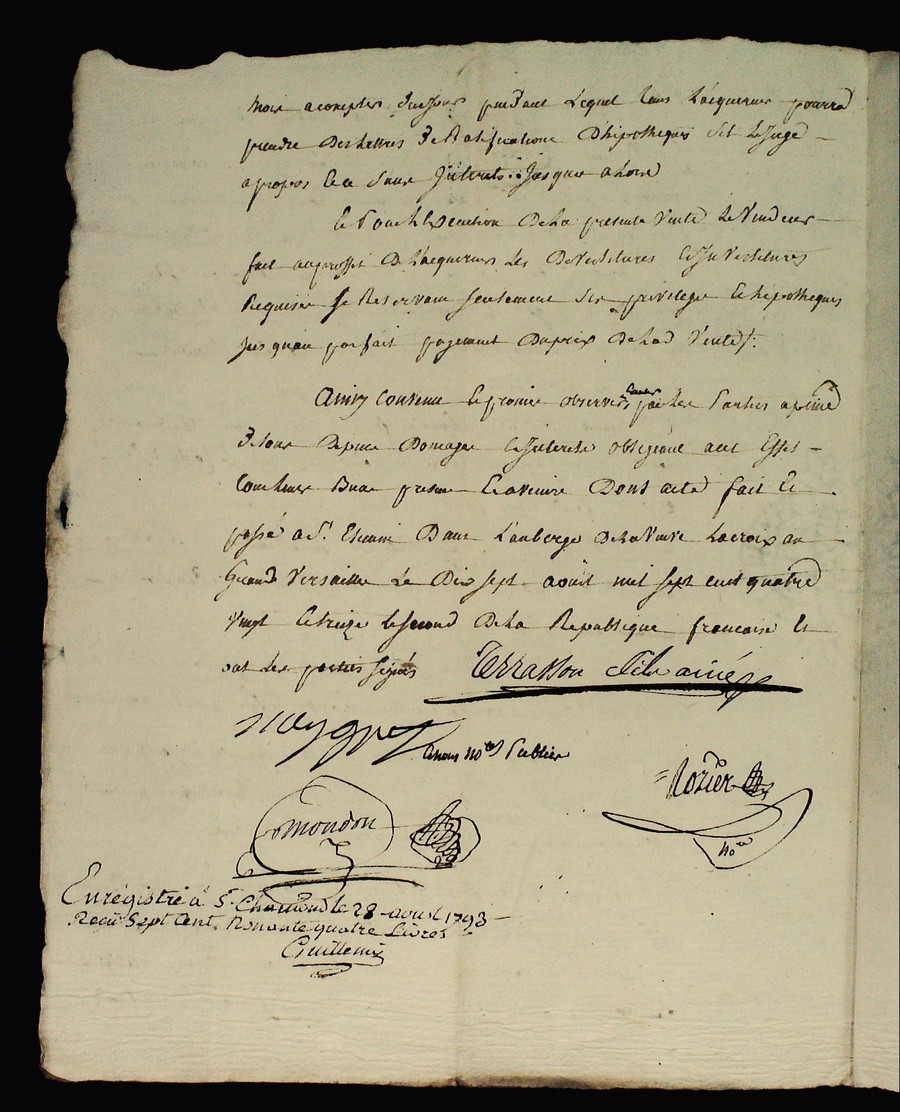 mois a compter de ce jour pendant lequel tems Lacquereur pourra
prendre Des Lettres De Ratifications D'hipotheques s'il le Juge
a propos Et ce sans Interets Jusques a Lors
Et Pour L'Execution De la presente Vente le Vendeur
fait au proffit De L'acquereur Les Devestitures Et Investitures
Requises se Reservant seulement ses privileges Et hipotheques
Jusqu'au parfait payement Du prix De lad Vente
Ainsy Convenu Et promis observer par les Parties a peine
De tous Depens Domages Et Interets obligeant aud Effet
Leurs Biens presens Et avenirs Dont acte fait Et
passé a St Etienne Dans L'auberge De la Veuve Lacroix au
Grand Versailles Le Dix sept avril mil sept cent quatre
vingt Et treize le second De la Republique francoise Et
ont Les parties signés Terrasson fils ainé
nous no.res Publics
Rozier
no.re
mondon
Enregistré à St Chamond le 28 avril 1793
Reçu Sept Cent Nonante quatre Livres
Guillemin